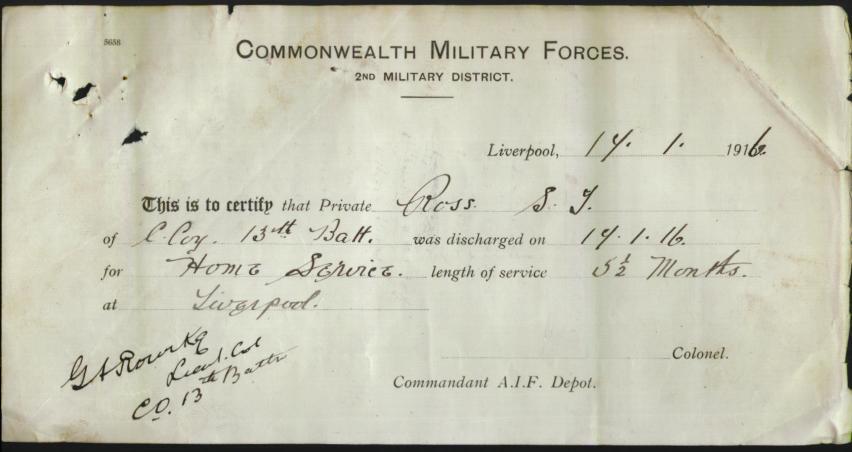 5658
COMMONWEALTH MILITARY FORCES.
2ND MILITARY DISTRICT.
Liverpool, 14. 1. 1916.
This is to certify that Private Ross S. J.
of C. Coy. 13th Batt. was discharged on 14.1.16.
for Home Service. length of service 5½ Months.
at Liverpool.
Colonel.
Commandant A.I.F. Depot.
Lieut. Col
C.O. 13th Battn